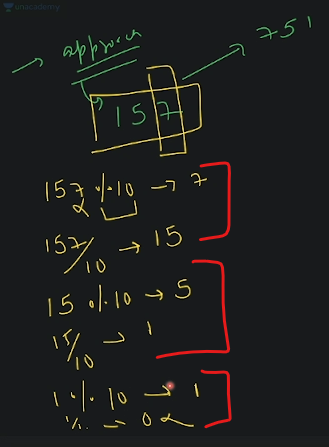 unacademy
→ approach
157 → 751
157 % 10 → 7
157/10 → 15
15 % 10 → 5
15/10 → 1
1 % 10 → 1
→ 0